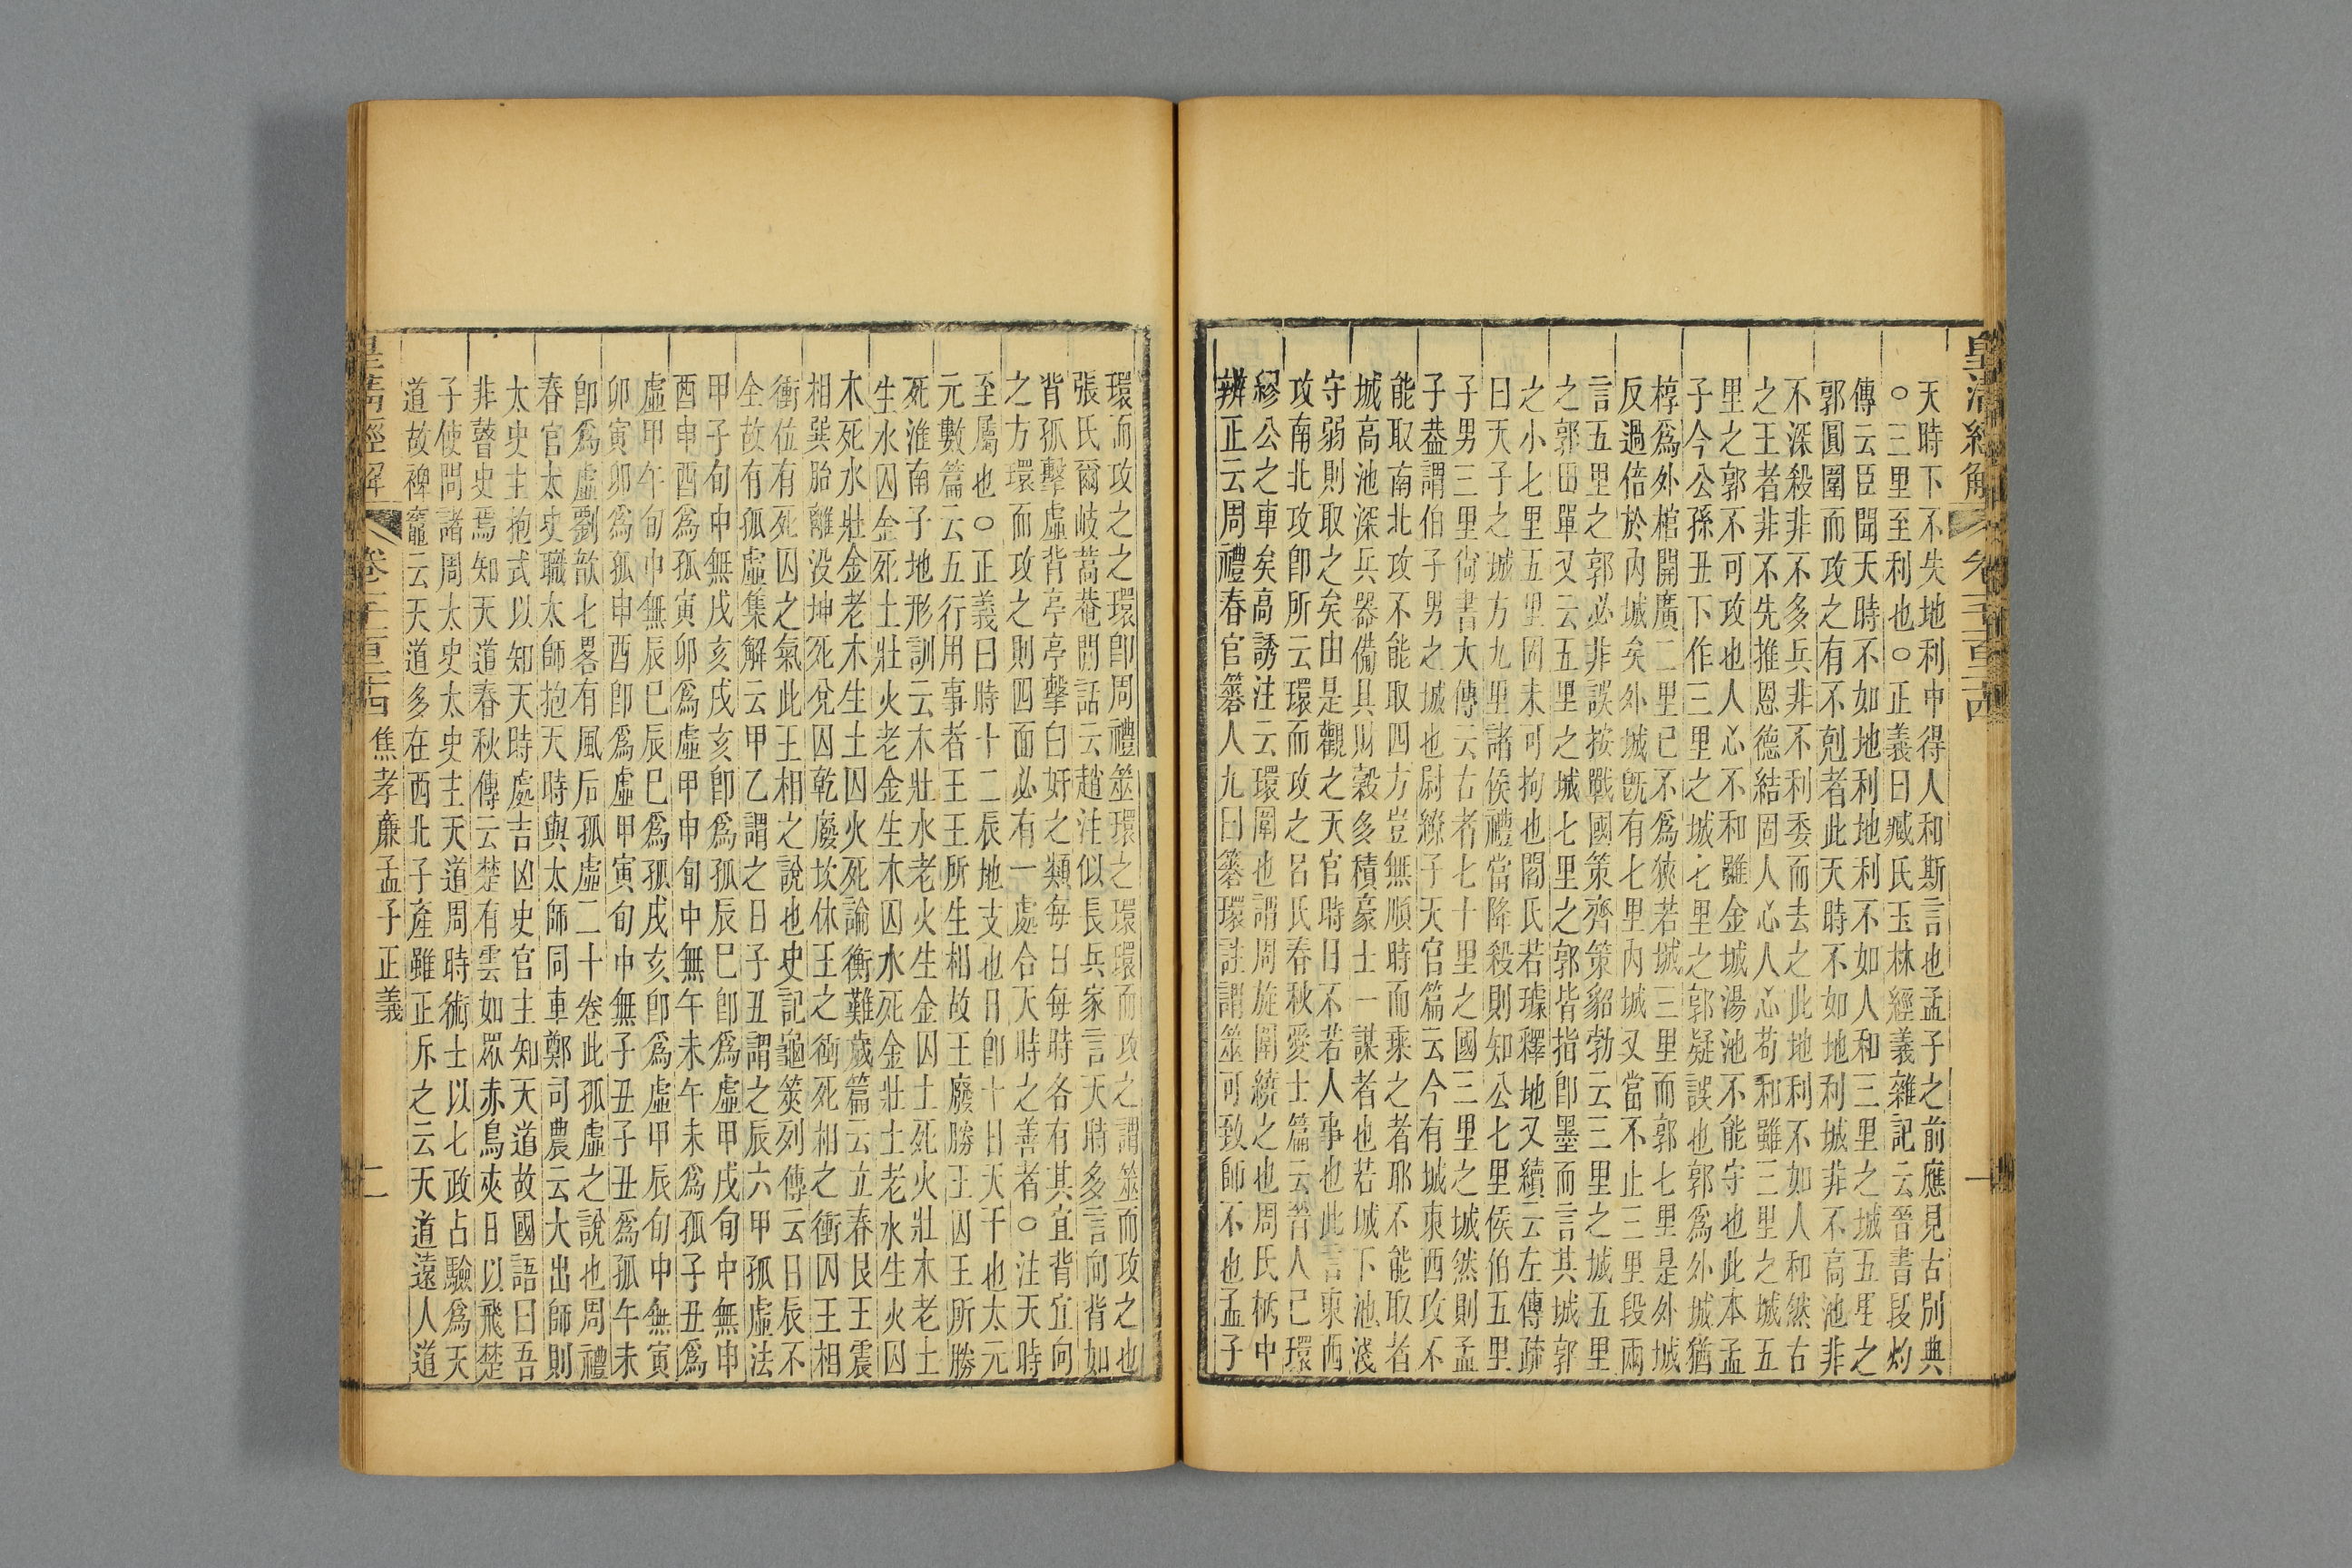 皇清經解
天時下不失地利中得人和斯言也孟子之前應見古別典
○三里至利也○正義曰臧氏玉林經義雜記云晉書段灼
傳云臣聞天時不如地利地利不如人和三里之城五里之
郭圓圍而攻之有不剋者此天時不如地利城非不高池非
不深殺非不多兵非不利委而去之此地利不如人和然古
之王者非不先推恩德結固人心人心苟和雖三里之城五
里之郭不可攻也人心不和雖金城湯池不能守也此本孟
子今公孫丑下作三里之城七里之郭疑誤也郭爲外城猶
椁爲外棺開廣二里已不爲狹若城三里而郭七里是外城
反過倍於內城矣外城旣有七里內城又當不止三里段兩
言五里之郭必非誤按戰國策齊策貂勃云三里之城五里
之郭田單又云五里之城七里之郭皆指卽墨而言其城郭
之小七里五里固未可拘也閻氏若璩釋地又續云左傳疏
曰天子之城方九里諸侯禮當降殺則知公七里侯伯五里
子男三里尙書大傳云古者七十里之國三里之城然則孟
子葢謂伯子男之城也尉繚子天官篇云今有城東西攻不
能取南北攻不能取四方豈無順時而乘之者耶不能取者
城高池深兵器備具財穀多積豪士一謀者也若城下池淺
守弱則取之矣由是觀之天官時日不若人事也此言東西
攻南北攻卽所云環而攻之呂氏春秋愛士篇云晉人已環
繆公之車矣高誘注云環圍也謂周旋圍繞之也周氏柄中
辨正云周禮春官簭人九曰簭環註謂筮可致師不也孟子
一
環而攻之之環卽周禮筮環之環環而攻之謂筮而攻之也
張氏爾岐蒿菴閒話云趙注似長兵家言天時多言向背如
背孤擊虛背亭亭擊白奸之類每日每時各有其宜背宜向
之方環而攻之則四面必有一處合天時之善者○注天時
至屬也○正義曰時十二辰地支也日卽十日天干也太元
元數篇云五行用事者王王所生相故王廢勝王囚王所勝
死淮南子地形訓云木壯水老火生金囚土死火壯木老土
生水囚金死土壯火老金生木囚水死金壯土老水生火囚
木死水壯金老木生土囚火死論衡難歲篇云立春艮王震
相巽胎離沒坤死兌囚乾廢坎休王之衝死相之衝囚王相
衝位有死囚之氣此王相之說也史記龜筴列傳云日辰不
全故有孤虛集解云甲乙謂之日子丑謂之辰六甲孤虛法
甲子旬中無戌亥戌亥卽爲孤辰巳卽爲虛甲戌旬中無申
酉申酉爲孤寅卯爲虛甲申旬中無午未午未爲孤子丑爲
虛甲午旬中無辰巳辰巳爲孤戌亥卽爲虛甲辰旬中無寅
卯寅卯爲孤申酉卽爲虛甲寅旬中無子丑子丑爲孤午未
卽爲虛劉歆七畧有風后孤虛二十卷此孤虛之說也周禮
春官太史職太師抱天時與太師同車鄭司農云大出師則
太史主抱式以知天時處吉凶史官主知天道故國語曰吾
非瞽史焉知天道春秋傳云楚有雲如眾赤鳥夾日以飛楚
子使問諸周太史太史主天道周時術士以七政占驗爲天
道故裨竈云天道多在西北子產雖正斥之云天道遠人道
焦孝廉孟子正義
二